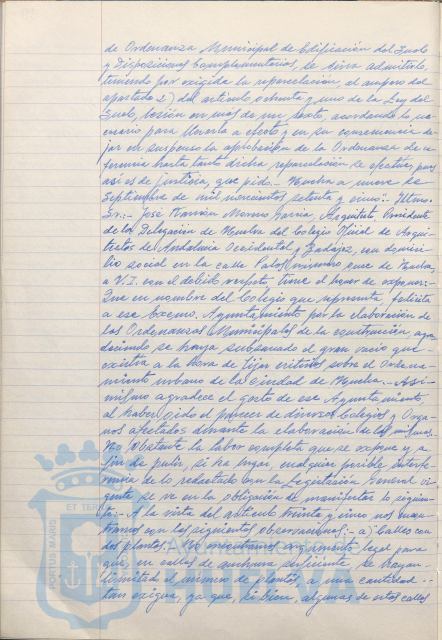 de Ordenanza Municipal de Edificación del Suelo
y Disposiciones Complementarias, se sirva admitirlo,
teniendo por exigida la reparcelación, al amparo del
apartado 2) del artículo ochenta y uno de la Ley del
Suelo, acordando lo ne-
cesario para llevarla a efecto y en su consecuencia de-
jar en suspenso la aprobación de la Ordenanza de re-
ferencia hasta tanto dicha reparcelación se efectúe, pues
así es de justicia, que pido.- Huelva a nueve de
Septiembre de mil novecientos setenta y cinco".- Iltmo.
Sr.:- José Ramón Moreno García, Arquitecto Presidente
de la Delegación de Huelva del Colegio Oficial de Arqui-
tectos de Andalucía Occidental y Badajoz, con domici-
lio social en la calle Palos número once de Huelva,
a V.I. con el debido respeto, tiene el honor de exponer:-
Que en nombre del Colegio que representa, felicita
a ese Excmo. Ayuntamiento por la elaboración de
las Ordenanzas Municipales de la construcción, agra-
deciendo se haya subsanado el gran vacío que
existía a la hora de fijar criterios sobre el Ordena-
miento urbano de la ciudad de Huelva.- Así-
mismo agradece el gesto de ese Ayuntamiento
al haber oido el parecer de diversos Colegios y Orga-
nos afectados durante la elaboración de las mismas.
No obstante la labor completa que se expone y a
fin de paliar, si ha lugar, cualquier posible interfe-
rencia de lo redactado con la Legislación General vi-
gente, se ve en la obligación de manifestar lo siguien-
te:- A la vista del artículo treinta y cinco nos encon-
tramos con las siguientes observaciones:- a) Calles con
dos plantas.- No encontramos argumento legal para
que, en calles de anchura suficiente, se hayan
limitado el número de plantas, a una cantidad
tan exigua, ya que, si bien, algunas de estas calles
PORTUS MARIS
ET TERRAE